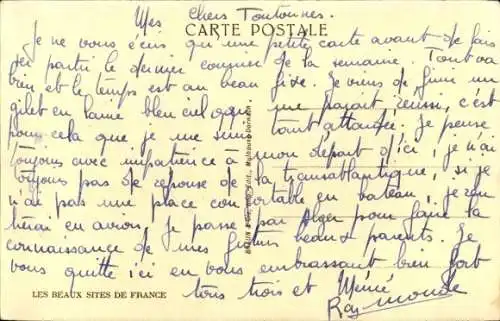 Mes chers Toutounes.
CARTE POSTALE
Je ne vous écris qu'une petite carte avant de faire
partir le dernier courrier de la semaine. Tout va
bien et le temps est au beau fixe. Je viens de finir un
gilet en laine bleu ciel qui me paraît réussi, c'est
pour cela que je me suis tant attardée. Je pense
toujours avec impatience à mon départ d'ici, je n'ai
toujours pas de réponse de la transatlantique, si je
n'ai pas une place confortable en bateau, je rentrerai
en avion, je passe par Alger pour faire la
connaissance de mes futurs beaux parents. Je
vous quitte ici en vous embrassant bien fort
tous trois et Mémé
Raymonde
LES BEAUX SITES DE FRANCE